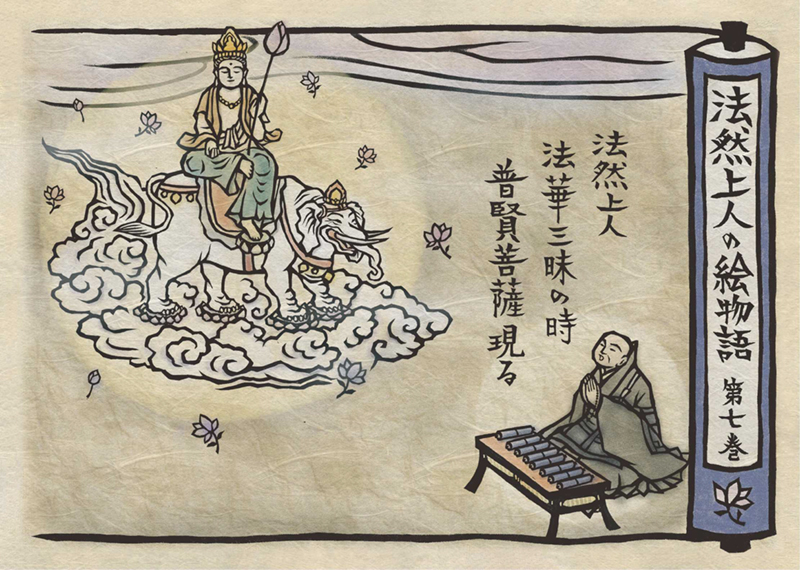 法然上人の絵物語 第七巻
法然上人
法華三昧の時
普賢菩薩現る